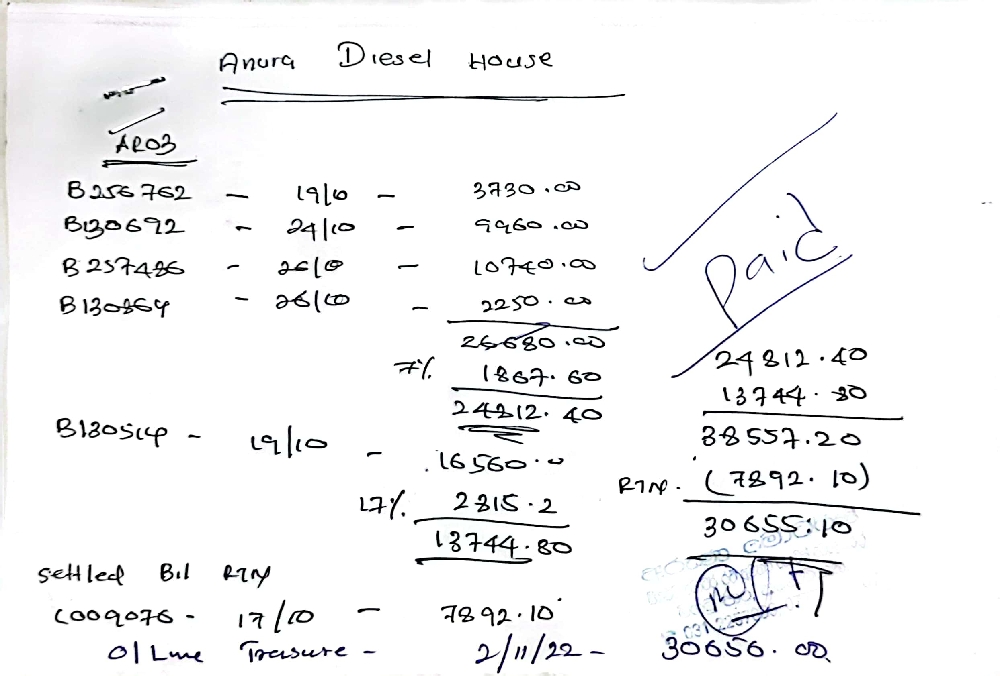 Anura Diesel House
AR03
B256762 - 19/10 - 3730.00
B130692 - 24/10 - 9960.00
B257486 - 26/10 - 10740.00
B130864 - 26/10 - 2250.00
26680.00
7% 1867.60
24812.40
B130514 - 19/10 - 16560.0
17% 2815.2
13744.80
Paid
24812.40
13744.80
38557.20
RTN. (7892.10)
30655.10
settled Bil RTN
C009076 - 17/10 - 7892.10
O/Line Treasure - 2/11/22 - 30656.00